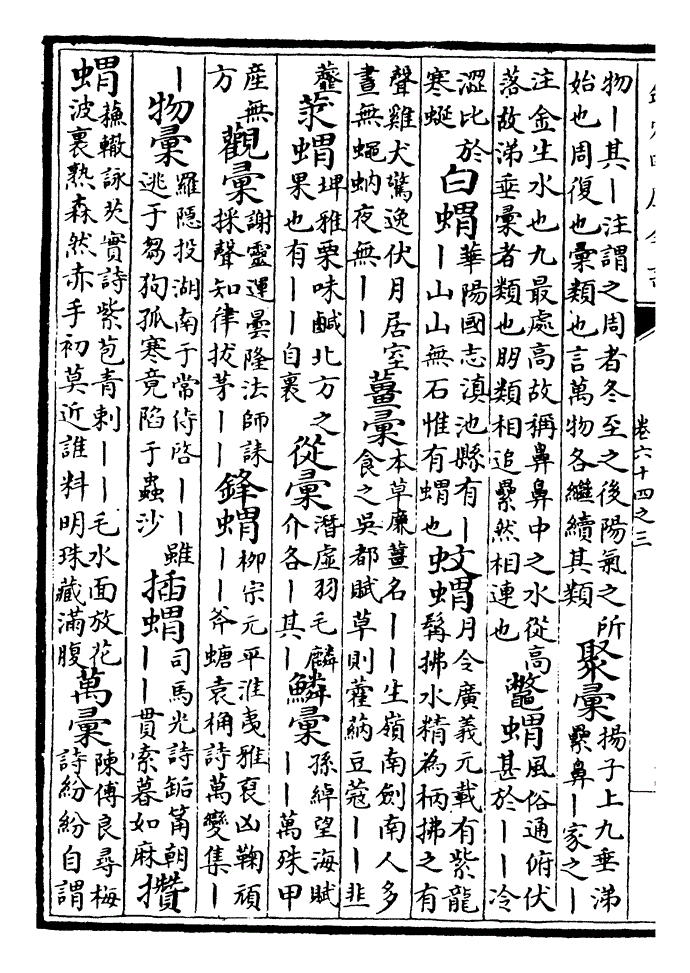 卷六十四之三
物｜其｜注謂之周者冬至之後陽氣之所
始也周復也彙類也言萬物各繼續其類
聚彙
揚子上九垂涕
纍鼻｜家之｜
注金生水也九最處高故稱鼻鼻中之水從高
落故涕垂彙者類也朋類相追纍然相連也
鼈蝟
風俗通俯伏
甚於｜｜冷
澀比於
寒蜒
白蝟
華陽國志滇池縣有｜
｜山山無石惟有蝟也
蚊蝟
月令廣義元載有紫龍
髯拂水精為柄拂之有
聲雞犬驚逸伏月居室
晝無蠅蚋夜無｜｜
薑彙
本草廉薑名｜｜生嶺南劍南人多
食之吳都賦草則藿蒳豆蔻｜｜非
莍蝟
埤雅栗味鹹北方之
果也有｜｜自裹
從彙
潛虛羽毛麟
介各｜其｜
鱗彙
孫綽望海賦
｜｜萬殊甲
產無
方
觀彙
謝靈運曇隆法師誄
採聲知律拔茅｜｜
鋒蝟
柳宗元平淮夷雅裒凶鞠頑
｜｜斧螗袁桷詩萬變集｜
｜
物彙
羅隱投湖南于常侍啓｜｜雖
逃于芻狗孤寒竟陷于蟲沙
插蝟
司馬光詩缿筩朝
｜｜貫索暮如麻
攢
蝟
蘇轍詠芡實詩紫苞青刺｜｜毛水面放花
波裏熟森然赤手初莫近誰料明珠藏滿腹
萬彙
陳傅良尋梅
詩紛紛自謂